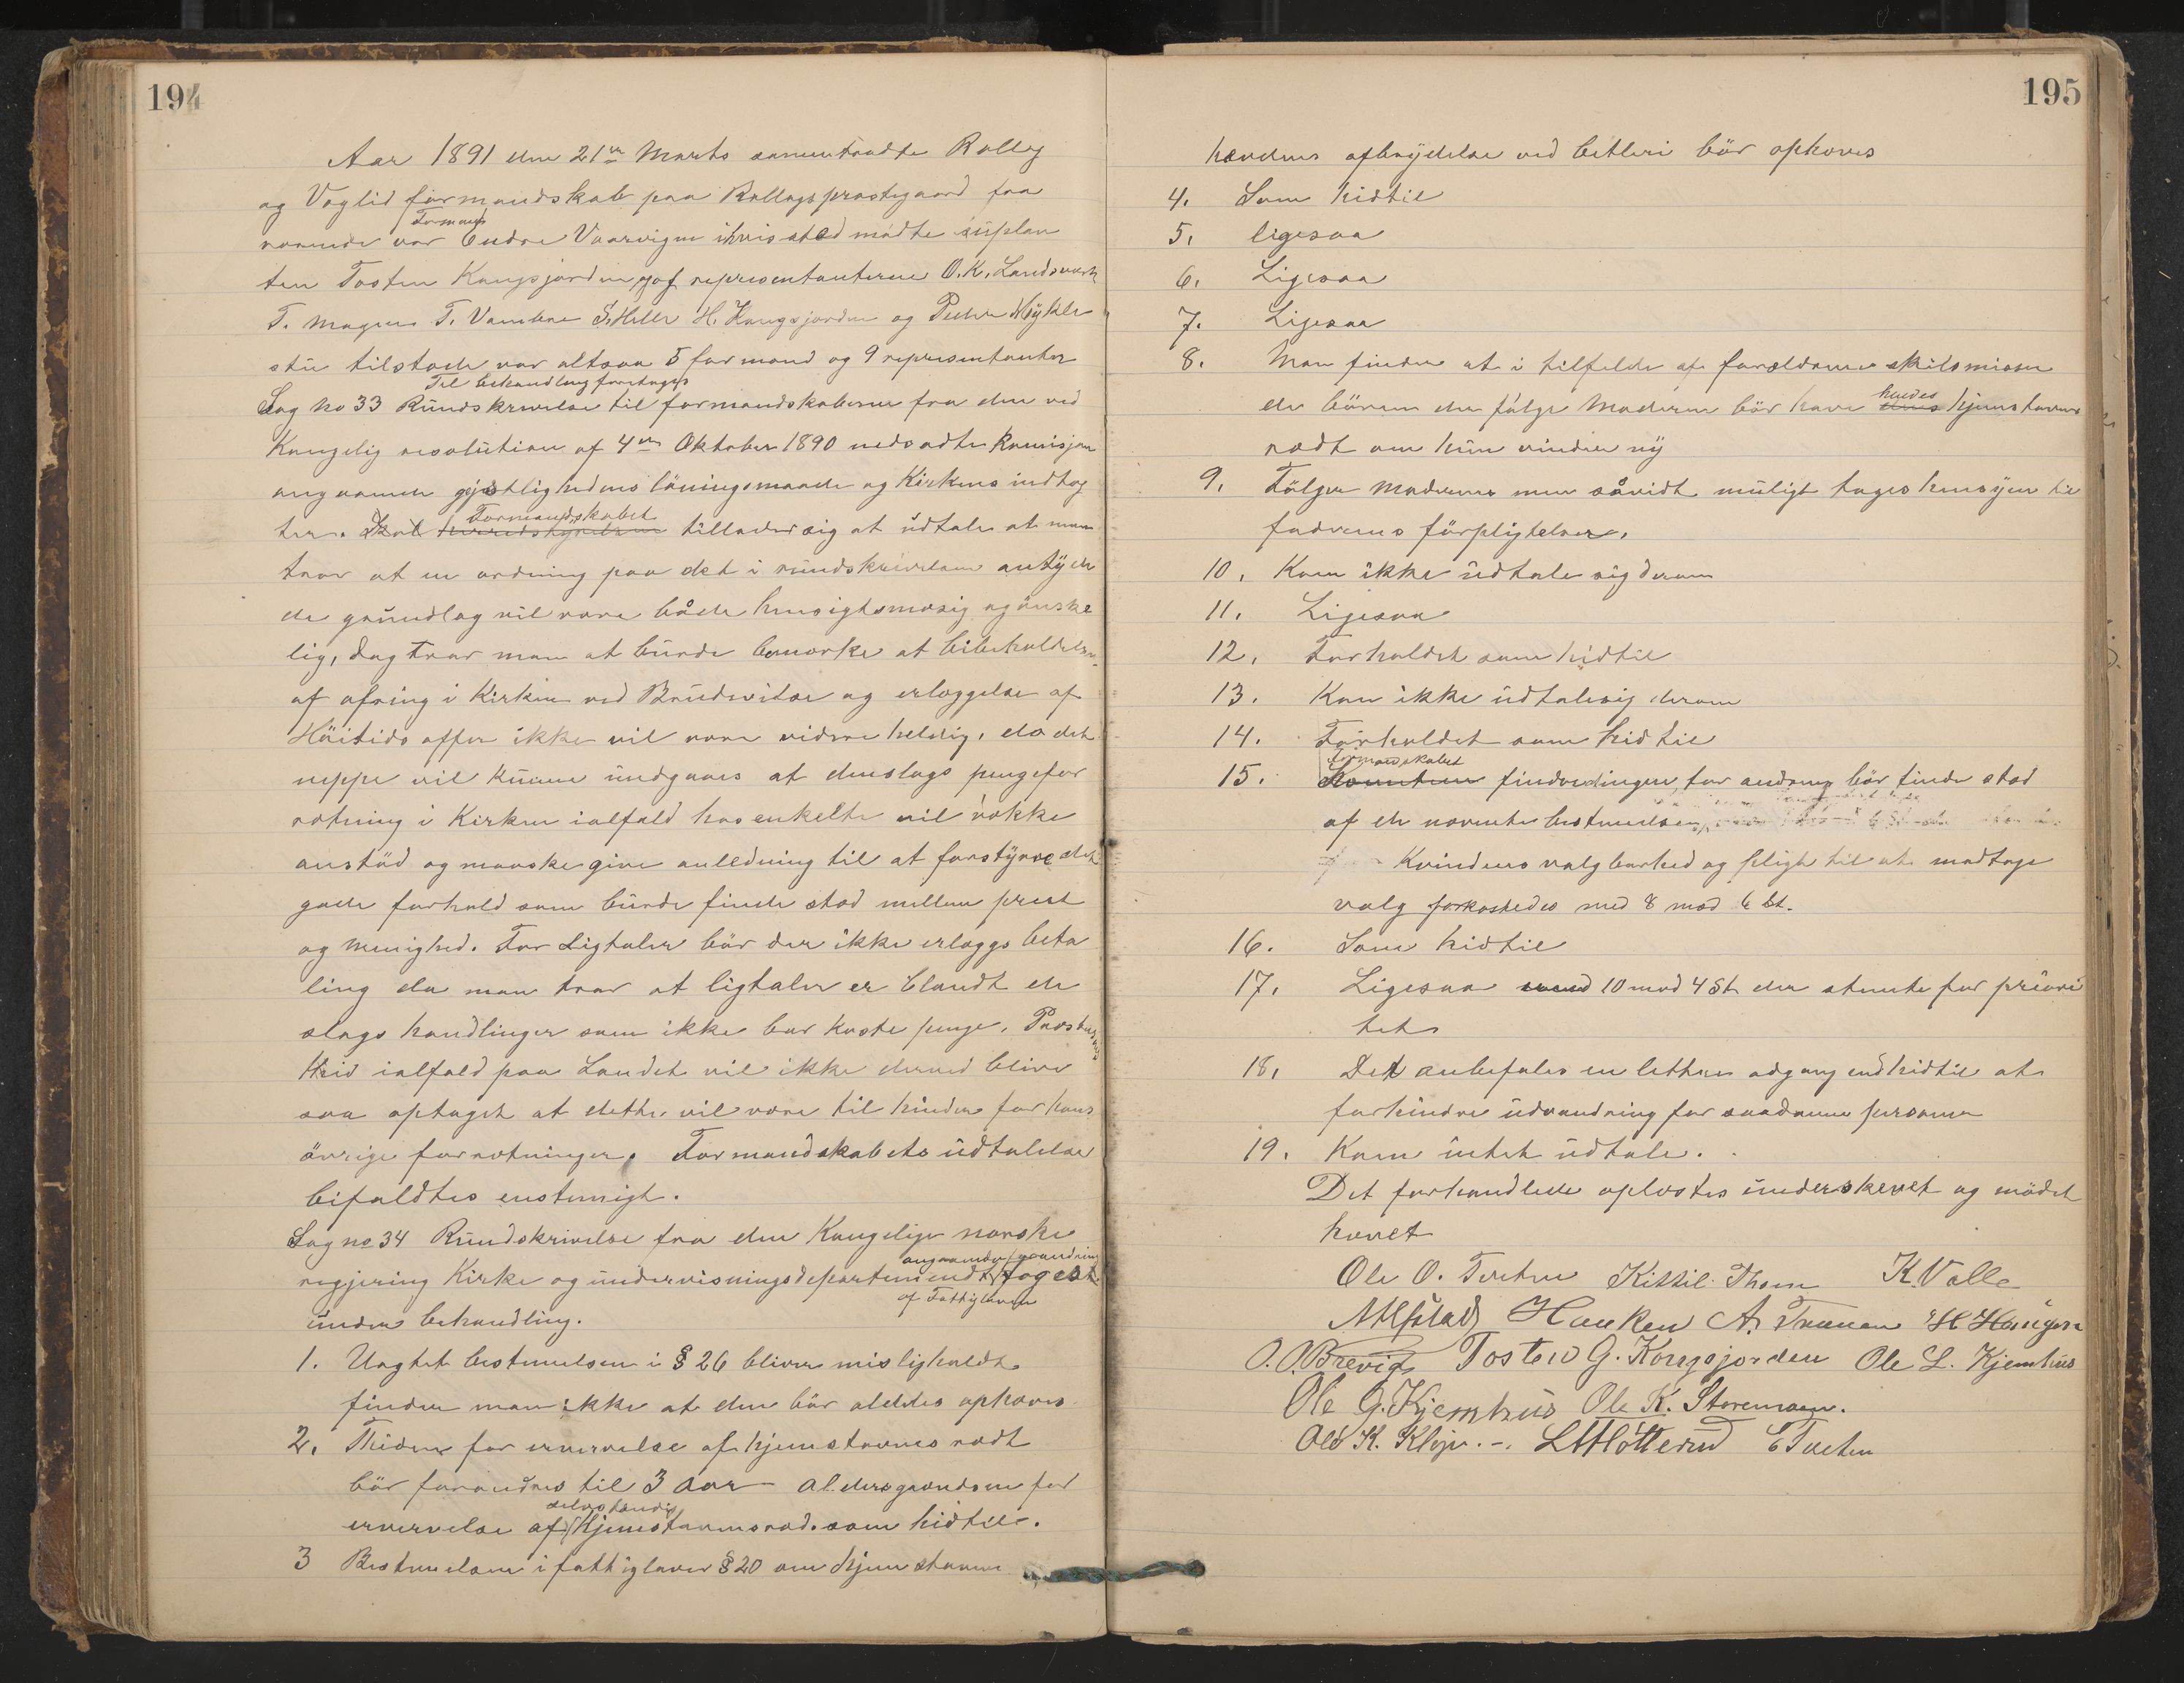 194
Aar 1891 den 21de Marts sammentraadte Rollag
og Veglid formandskab paa Rollags prestegaard fra
Formand
værende var Endre Vaarvigen ihvis sted mödte suplan
ten Tosten Kongsjorden, og af representanterne O. K. Landsverk
T. Mogen T. Vamben H. Kongsjorden og Peder Mykle
stu tilstede var altsaa 5 formænd og 9 representanter
Til behandling foretoges
Sag No 33 Rundskrivelse til formandskaberne fra den ved
Kongelig resolution af 4de Oktober 1890 nedsadte Komisjon
angaaende gejstlighedens löningsmaade og Kirkens indtæg
Formandskabet
ter. Skal herredstyrelsen tillader sig at udtale at man
tror at en ordning paa det i rundskrivelsen antyde
de grundlag vil være både hensigtsmæsig og önske
lig, dog tror man at burde bemærke at bibeholdelsen
af ofring i Kirken ved Brudevielse og erlæggelse af
Höitids offer ikke vil være videre heldig, da det
neppe vil kunne undgaaes at denslags pengefor
retning i Kirken ialfald hos enkelte vil vække
anstöd og maaske give anledning til at forstyrre det
gode forhold som burde finde sted mellem prest
og menighed. For Ligtaler bör der ikke erlægges beta
ling da man tror at ligtaler er blandt de
slags handlinger som ikke bör koste penge. Prestens
tid ialfald paa Landet vil ikke derved blive
saa optaget at dette vil være til hinder for hans
övrige forretninger. Formandskabets udtalelse
bifaldtes enstemmigt.
Sag no 34 Rundskrivelse fra den Kongelige norske
angaaende forandring
regjering Kirke og undervisningsdepartementet toges
af Fattigloven
under behandling.
1. Uagtet bestemelsen i § 26 bliver misligholdt
finder man ikke at den bör aldeles ophæves
2. Tiden for ervervelse af hjemstavnes rædt
bör forandres til 3 aar – aldersgrændsen for
selvstændig
ervervelse af hjemstavnsræd. som hidtil.
3 Bestemelsen i fattigloven § 20 om hjemstavns
195
hævdens afbrydelse ved betleri bör ophæves
4. Som hidtil
5. ligesaa
6. Ligesaa
7. Ligesaa
8. Man finder at i tilfelde af forældrenes skilsmisse
hendes
de börn der fölger Moderen bör have dens hjemstavns
rædt om hun vinder ny
9. Fölger moderens men såvidt muligt tages hensyn til
faderens forpligtelser.
10. Kan ikke udtale sig derom
11. Ligesaa
12. Forholdet som hidtil
13. Kan ikke udtale sig derom
14. Forholdet som hidtil
formandskabet
15. Komiteen finder ingen forandring bör finde sted
af de nævnte bestemelser
Kvindens valgbarhed og pligt til at modtage
valg forkastedes med 8 mod 6 st.
16. Som hidtil
17. Ligesaa med 10 mod 4 St der stemte for priori
tet
18. Det anbefales en lettere adgang end hidtil at
forhindre udvandring for saadanne personer
19. Kan intet udtale.
Det forhandlede oplæstes underskrevet og mödet
hævet
Ole O. Traaen Kittil Thom K. Valle
Hauken A. Traaen H Haugen
O. O. Brevig Tosten G. Kongsjorden Ole L. Kjemhus
Ole G. Kjemhus Ole K. Storemoen.
Ole K. Kleje. E Traaen